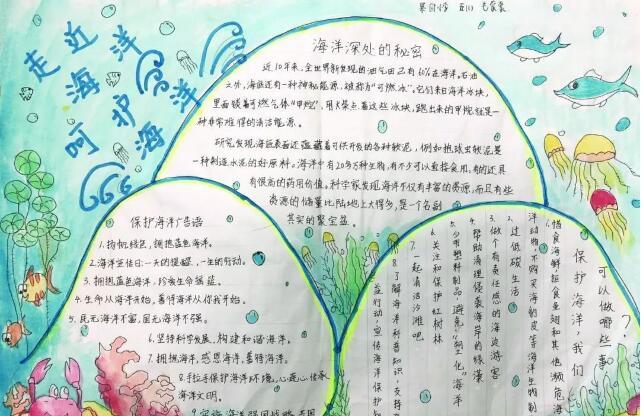 走近
海洋
呵护海洋
海洋深处的秘密
近10年来,全世界新发现的油气田已有60%在海洋。石油
之外,海底还有一种神秘能源,被称为“可燃冰”。它们来自海洋冰块,
里面锁着可燃气体“甲烷”,用火柴点着这些冰块,跑出来的甲烷就是一
种非常难得的清洁能源。
研究发现海底表面还蕴藏着可供开发的各种软泥,例如抱球虫软泥是
一种制造水泥的好原料。海洋中有20多万种生物,有不少可以直接食用,有的还具
有很高的药用价值。科学家发现海洋不仅有丰富的资源,而且有些
资源的储量比陆地上大得多,是一个名副
其实的聚宝盆。
保护海洋广告语
1.扬帆绿色,拥抱蓝色海洋。
2.海洋宣传日:一天的提醒,一生的行动。
3.拥抱蓝色海洋,珍爱生命摇篮。
4.生命从海洋开始,善待海洋从你我开始。
5.民无海洋不富,国无海洋不强。
6.坚持科学发展,构建和谐海洋。
7.拥抱海洋,感恩海洋,善待海洋。
8.手拉手保护海洋环境,心连心传承
海洋文明。
保护海洋,我们
可以做哪些事?
1.惜食海鲜,拒食鱼翅和其他濒危海
洋动物,不购买海豹皮等海洋生物制
2.过低碳生活
3.做个有责任感的海边游客
4.帮助清理侵袭海岸的绿藻
5.少用塑料制品,避免“塑化”海洋
6.关注和保护红树林
7.一起清洁沙滩吧
8.了解海洋科普知识,支持
益行动,宣传海洋保护知